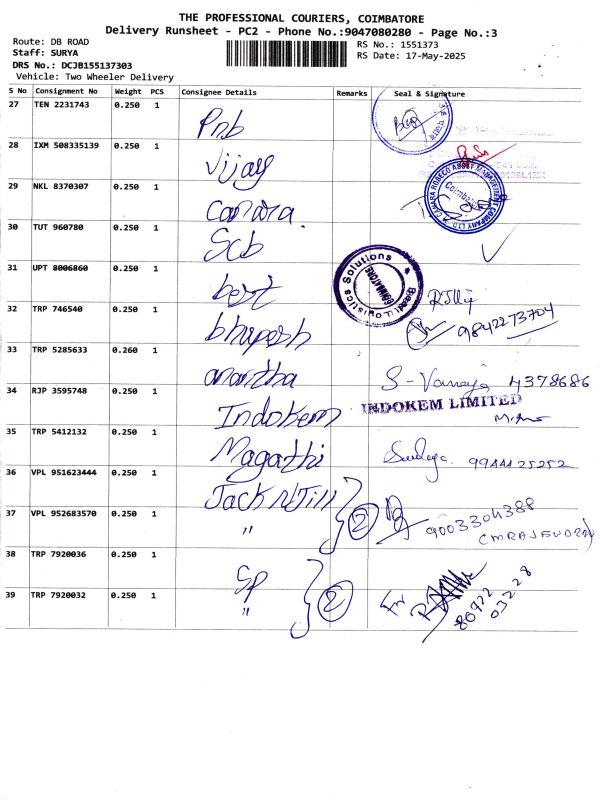 THE PROFESSIONAL COURIERS, COIMBATORE
Delivery Runsheet - PC2 - Phone No.:9047080280 - Page No.:3
Route: DB ROAD
Staff: SURYA
DRS No.: DCJB155137303
Vehicle: Two Wheeler Delivery
RS No.: 1551373
RS Date: 17-May-2025
S No Consignment No Weight PCS Consignee Details Remarks Seal & Signature
27 TEN 2231743 0.250 1 Pnb
28 IXM 508335139 0.250 1 Vijay
29 NKL 8370307 0.250 1 Canara.
CANARA ROBECO ASSET MANAGEMENT COMPANY LTD
Coimbatore
30 TUT 960780 0.250 1 Scb
31 UPT 8006860 0.250 1 best
Solutions
COIMBATORE
Logistics
32 TRP 746540 0.250 1 bhupesh 9842273704
33 TRP 5285633 0.260 1 anantha S-Vanaja 4378686
34 RJP 3595748 0.250 1 Indokem INDOKEM LIMITED
35 TRP 5412132 0.250 1 Magathi 9944425252
36 VPL 951623444 0.250 1 Jack N Jill
37 VPL 952683570 0.250 1 " 2 9003304388
38 TRP 7920036 0.250 1 SP
39 TRP 7920032 0.250 1 " 2 80722 03228